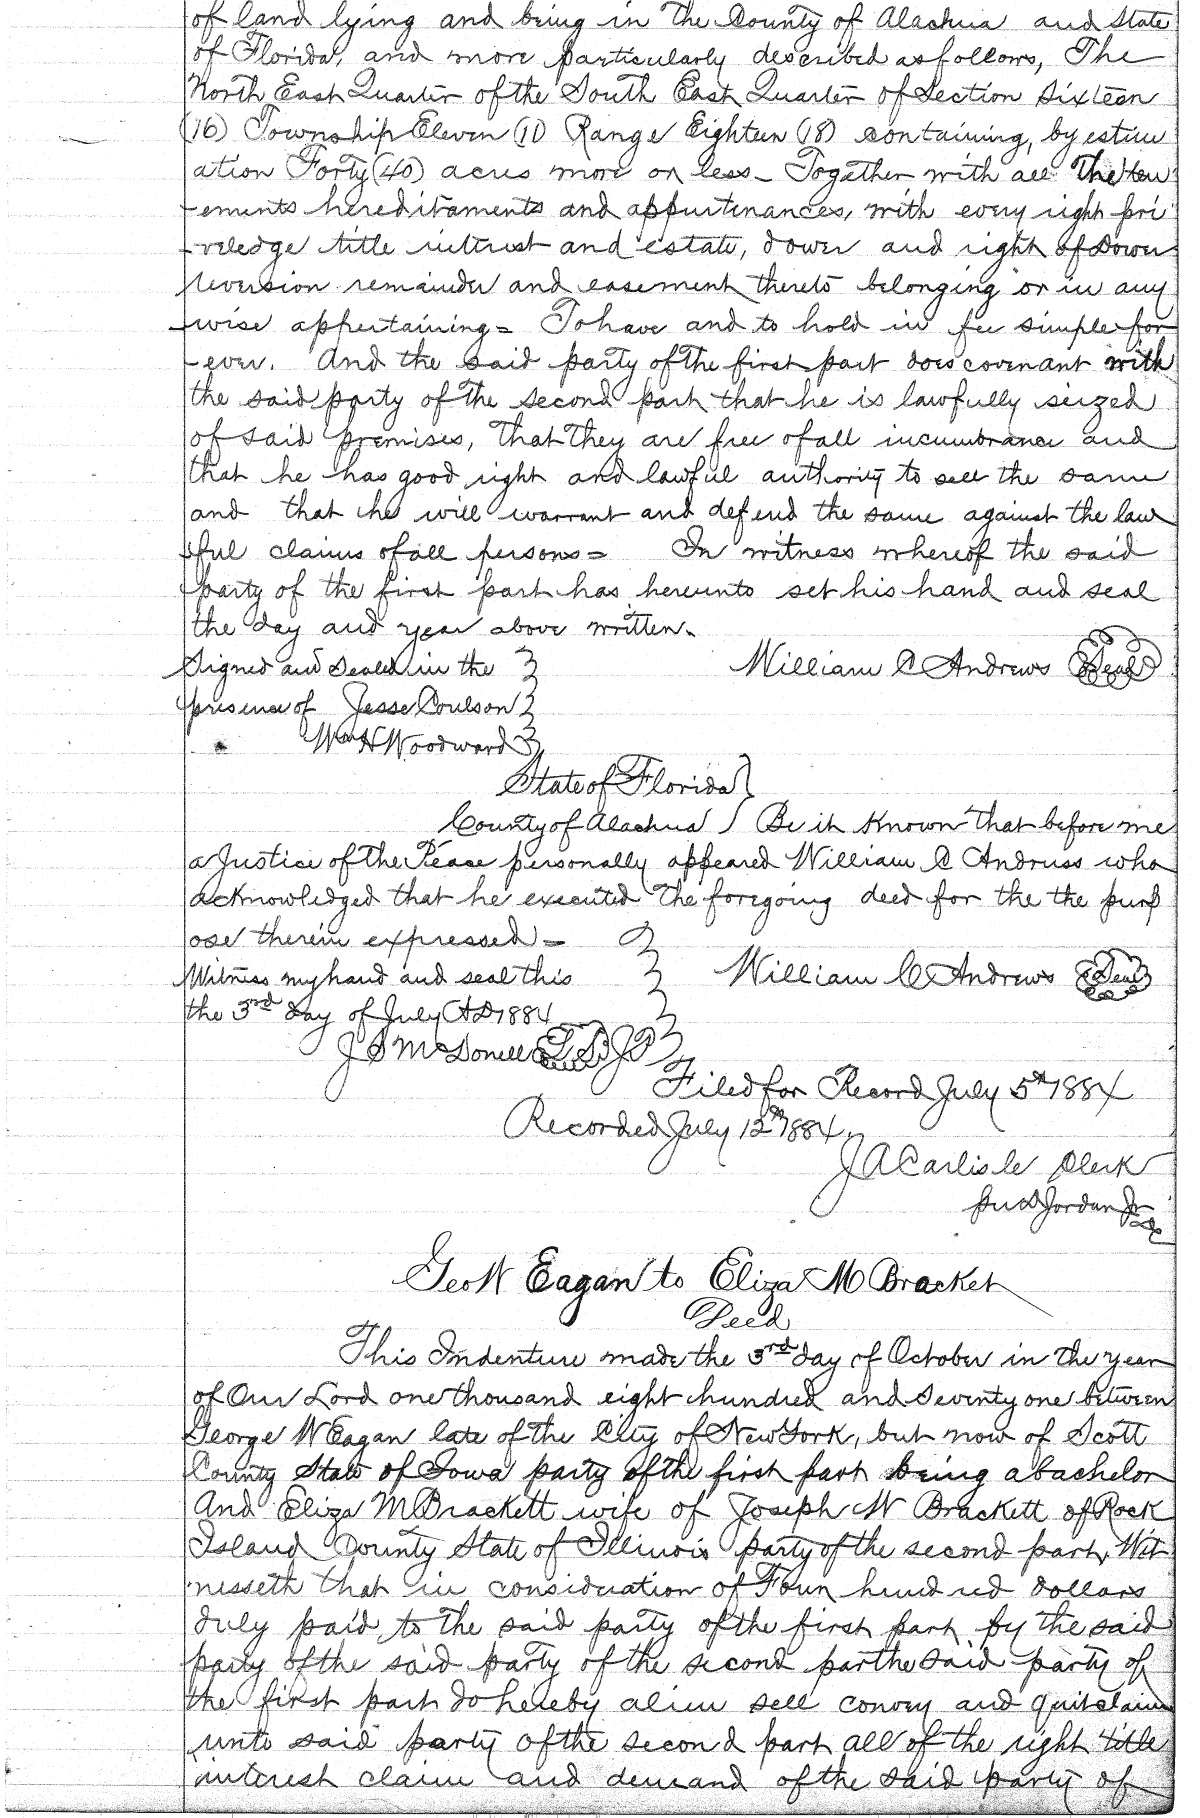 of land lying and being in the County of Alachua and State
of Florida, and more particularly described as follows, The
North East Quarter of the South East Quarter of Section Sixteen
(16) Township Eleven (11) Range Eighteen (18) containing, by estim
ation Forty (40) acres more or less - Together with all the ten
-ements hereditaments and appurtenances, with every right pri
-veledge title interest and estate, dower and right of Dower
reversion remainder and easement thereto belonging or in any
-wise appertaining = To have and to hold in fee simple for
-ever. And the said party of the first part does covenant with
the said party of the second part that he is lawfully seized
of said premises, that they are free of all incumbrance and
that he has good right and lawful authority to sell the same
and that he will warrant and defend the same against the law
ful claims of all persons = In witness whereof the said
party of the first part has hereunto set his hand and seal
the day and year above written.
Signed and Sealed in the William C Andrews Seal
presence of Jesse Coulson
Wm H Woodward
State of Florida
County of Alachua } Be it Known that before me
a Justice of the Peace personally appeared William C Andruss who
acknowledged that he executed the foregoing deed for the the purp
ose therein expressed =
Witness my hand and seal this William C Andrews Seal
the 3rd day of July AD 1884
J S McDonell L.S. JP
Filed for Record July 5th 1884
Recorded July 12th 1884.
J A Carlisle Clerk
Jordan Jr
Geo W Eagan to Eliza M Bracket
Deed
This Indenture made the 3rd day of October in the year
of Our Lord one thousand eight hundred and Seventy one between
George W Eagan late of the City of New York, but now of Scott
County State of Iowa party of the first part being a bachelor
And Eliza M Brackett wife of Joseph W Brackett of Rock
Island County State of Illinois party of the second part, Wit
nesseth that in consideration of Four hundred dollars
duly paid to the said party of the first part by the said
party of the said party of the second part the said party of
the first part do hereby alien sell convey and quitclaim
unto said party of the second part all of the right title
interest claim and demand of the said party of